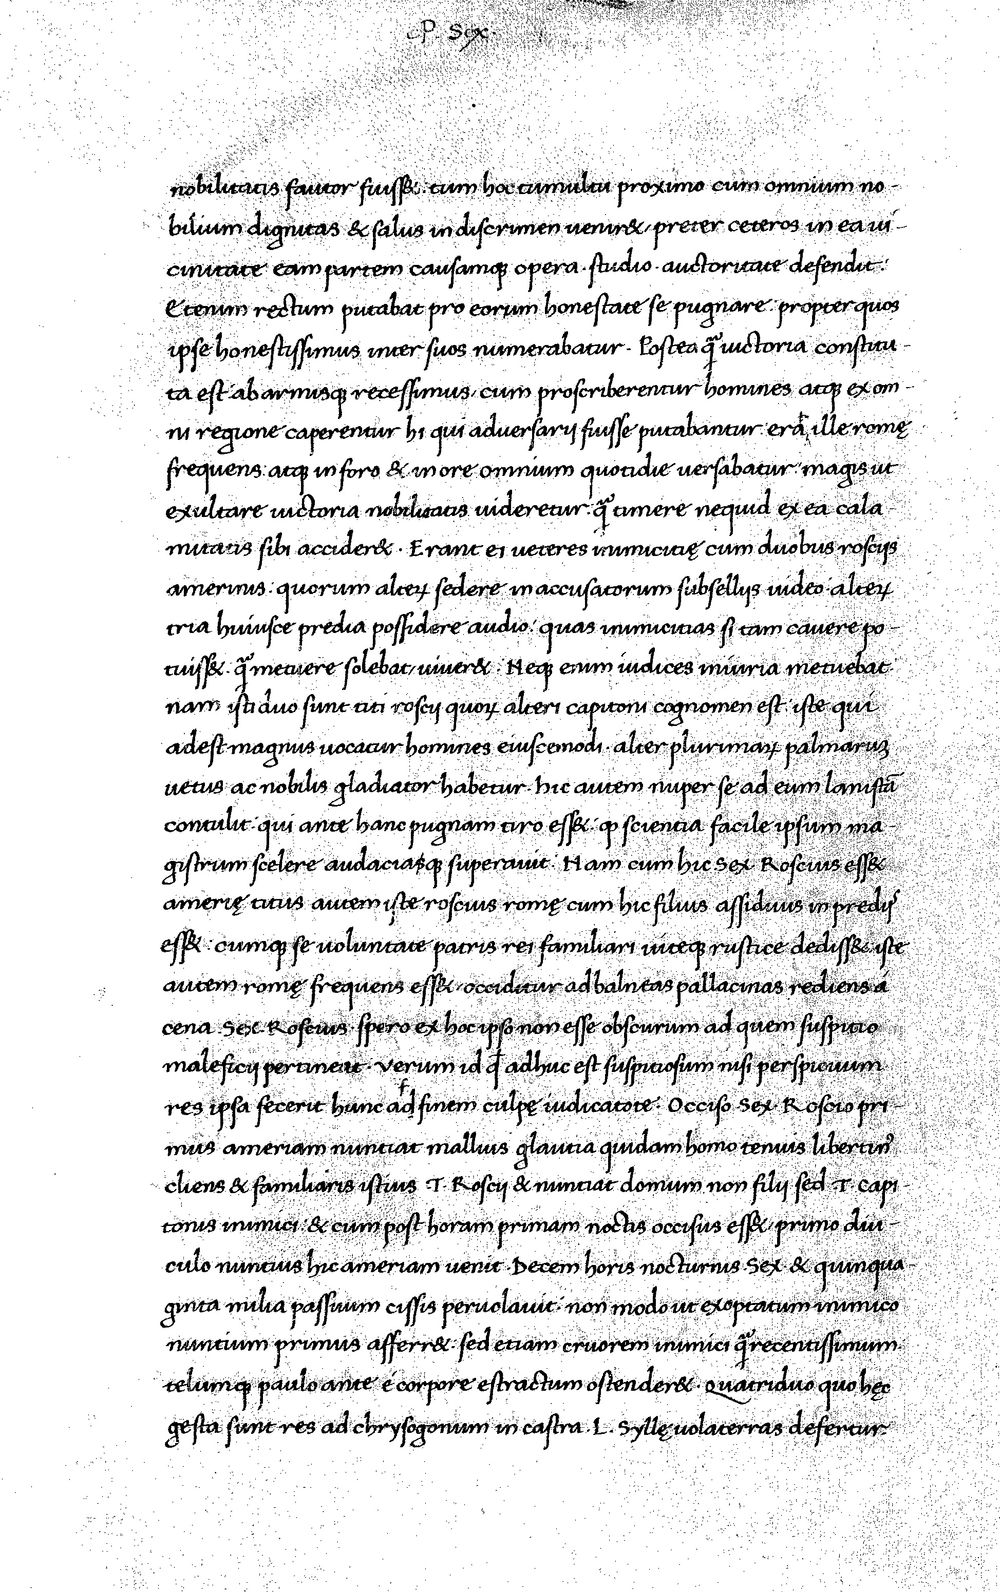 P. Sex.
nobilitatis fautor fuiss&. tum hoc tumultu proximo cum omnium no-
bilium dignitas & salus in discrimen uenir& preter ceteros in ea ui-
cinitate eam partem causamq; opera. studio. auctoritate defendit.
Etenim rectum putabat pro eorum honestate se pugnare. propter quos
ipse honestissimus inter suos numerabatur. Postea q̃ uictoria constitu-
ta est ab armisq; recessimus, cum proscriberentur homines atq; ex om-
ni regione caperentur hi qui aduersarij fuisse putabantur erat ille romę
frequens. atq; in foro & in ore omnium quotidie uersabatur. magis ut
exultare uictoria nobilitatis uideretur. q̃ timere nequid ex ea cala-
mitatis sibi accider&. Erant ei ueteres inimicitię cum duobus roscijs
amerinis. quorum alteꝝ sedere in accusatorum subsellijs uideo. alteꝝ
tria huiusce predia possidere audio. quas inimicitias si tam cauere po-
tuiss&. q̃ metuere solebat, uiuer&. Neq; enim iudices iniuria metuebat
nam isti duo sunt titi roscij quoꝝ alteri capitoni cognomen est. iste qui
adest magnus uocatur homines eiuscemodi. alter plurimaꝝ palmarum
uetus ac nobilis gladiator habetur. hic autem nuper se ad eum lanistã
contulit. qui ante hanc pugnam tiro ess& ꝙ scientia facile ipsum ma-
gistrum scelere audaciaq; superauit. Nam cum hic Sex Roscius ess&
amerię titus autem iste roscius romę cum hic filius assiduus in predijs
ess&. cumq; se uoluntate patris rei familiari uiteq; rustice dediss& iste
autem romę frequens ess& occiditur ad balneas pallacinas rediens á
cena Sex Roscius. spero ex hoc ipso non esse obscurum ad quem suspitio
maleficij pertineat. Verum id q̃ adhuc est suspitiosum nisi perspicuum
res ipsa fecerit hunc ad finem culpę iudicatote. Occiso Sex Roscio pri-
mus ameriam nuntiat mallius glautia quidam homo tenuis libertin9
cliens & familiaris istius T Roscij & nuntiat domum non filij sed T capi-
tonis inimici. & cum post horam primam noctis occisus ess& primo dilu-
culo nuntius hic ameriam uenit. Decem horis nocturnis Sex & quinqua-
ginta milia passuum cissis peruolauit. non modo ut exoptatum inimico
nuntium primus afferr&. sed etiam cruorem inimici q̃ recentissimum.
telumq; paulo ante é corpore estractum ostender&. Quatriduo quo hęc
gesta sunt res ad chrysogonum in castra .L. Syllę uolaterras defertur.